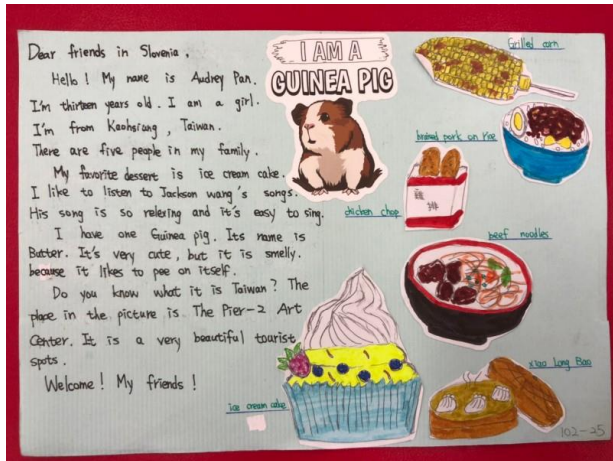 Dear friends in Slovenia,
Hello! My name is Audrey Pan.
I'm thirteen years old. I am a girl.
I'm from Kaohsiang, Taiwan.
There are five people in my family.
My favorite dessert is ice cream cake.
I like to listen to Jackson wang's songs.
His song is so relexing and it's easy to sing.
I have one Guinea pig. Its name is
Butter. It's very cute, but it is smelly.
because it likes to pee on itself.
Do you know what it is Taiwan? The
place in the picture is The Pier-2 Art
Center. It is a very beautiful tourist
spots.
Welcome! My friends!
I AM A
GUINEA PIG
Grilled corn
braised pork on rice
chicken chop
雞
排
beef noodles
xiao Long Bao
ice cream cake
102-25